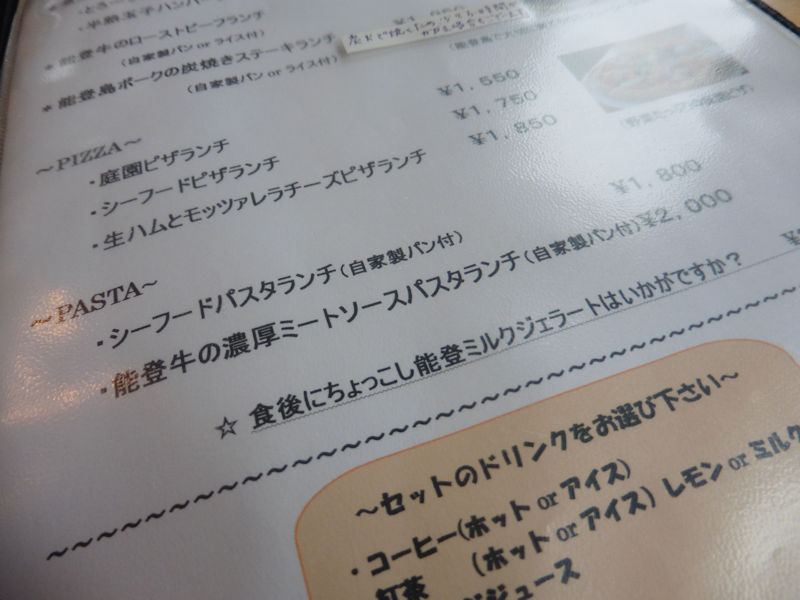 ・半熟玉子ハンバーグ
* 能登牛のローストビーフランチ
(自家製パン or ライス付)
* 能登島ポークの炭焼きステーキランチ
(自家製パン or ライス付)
～PIZZA～
・庭園ピザランチ ¥1,550
・シーフードピザランチ ¥1,750
・生ハムとモッツァレラチーズピザランチ ¥1,850
～PASTA～
・シーフードパスタランチ(自家製パン付) ¥1,800
・能登牛の濃厚ミートソースパスタランチ(自家製パン付)¥2,000
☆ 食後にちょっこし能登ミルクジェラートはいかがですか?
～セットのドリンクをお選び下さい～
・コーヒー(ホット or アイス)
紅茶 (ホット or アイス) レモン or ミルク
ジュース